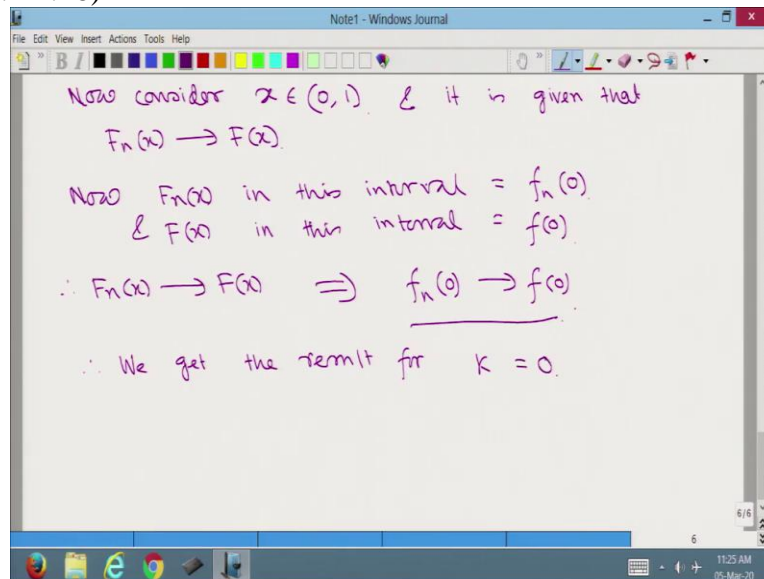 Note1 - Windows Journal
File Edit View Insert Actions Tools Help
B I
Now consider x ∈ (0, 1) & it is given that
Fn(x) → F(x).
Now Fn(x) in this interval = fn(0)
& F(x) in this interval = f(0)
∴ Fn(x) → F(x) ⇒ fn(0) → f(0).
∴ We get the result for K = 0.
6/6
6
11:25 AM
05-Mar-20